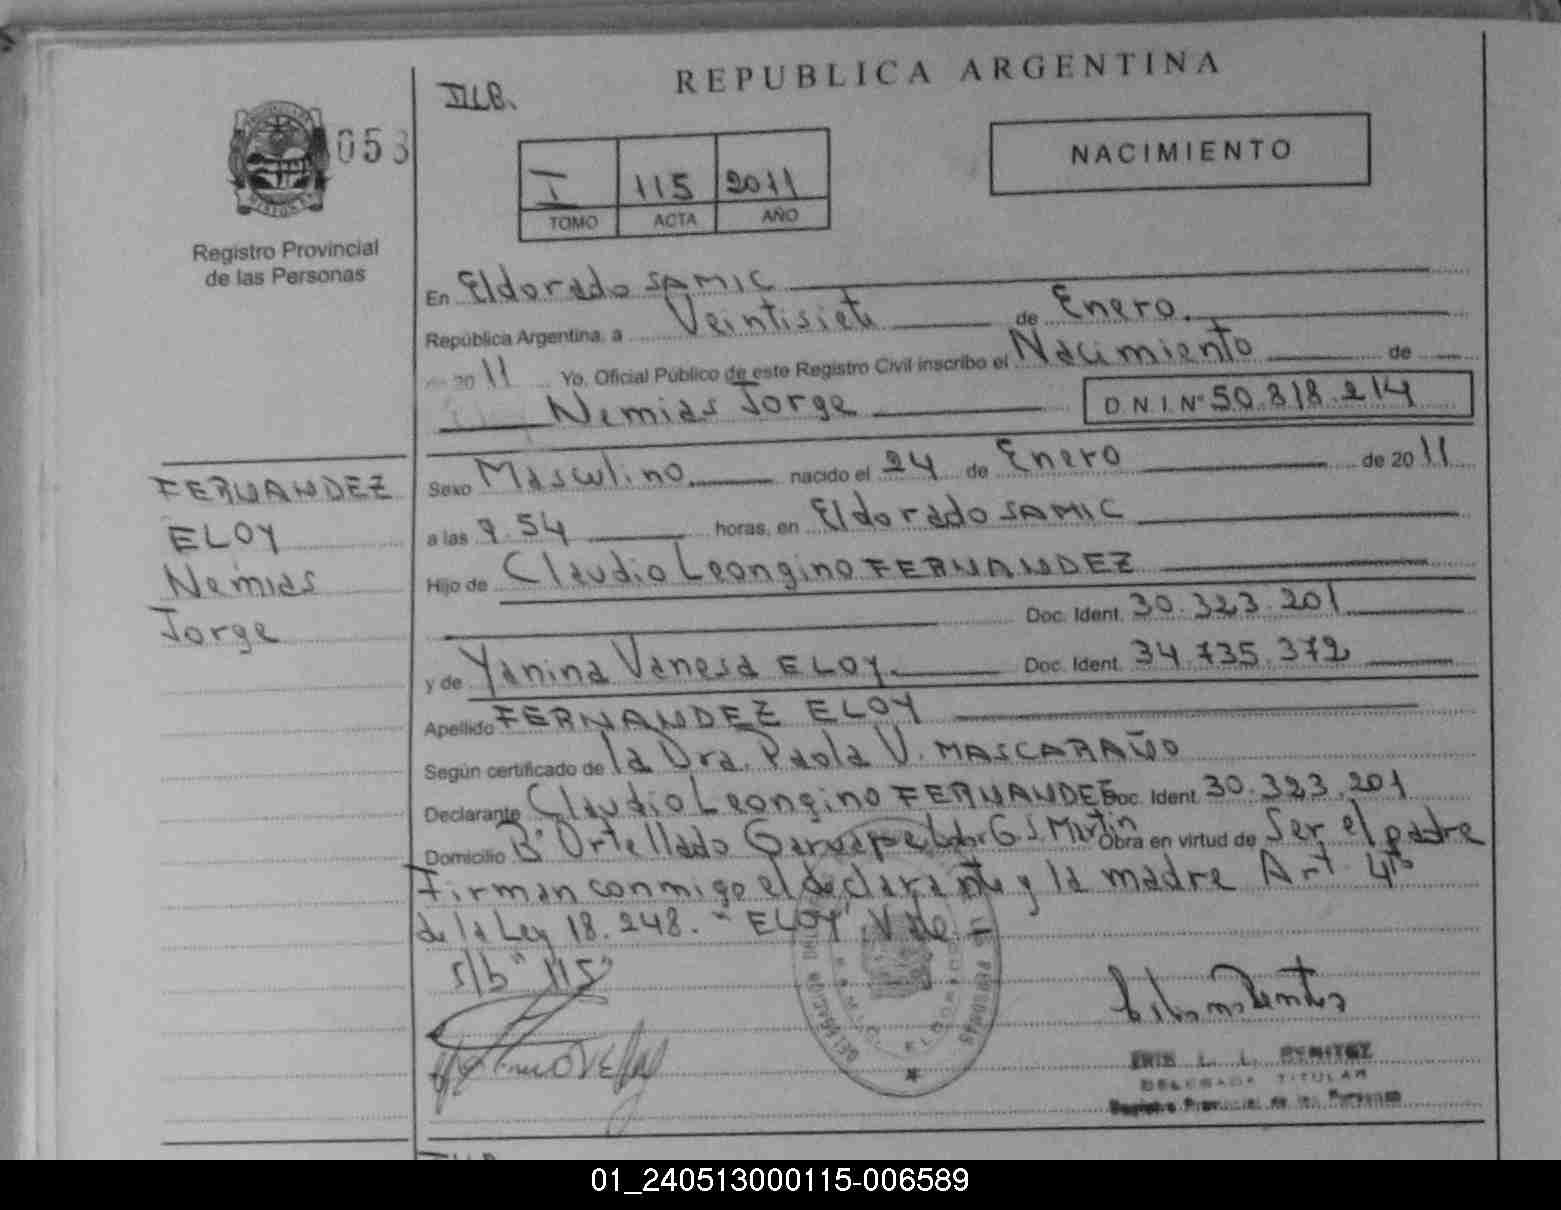 REPUBLICA ARGENTINA
053
NACIMIENTO
I 115 2011
TOMO ACTA AÑO
Registro Provincial
de las Personas
En Eldorado SAMIC
República Argentina, a Veintisiete de Enero.
de 2011 Yo, Oficial Público de este Registro Civil inscribo el Nacimiento de
Nemias Jorge D.N.I. Nº 50.818.214
FERNANDEZ
ELOY
Nemias
Jorge
Sexo Masculino nacido el 24 de Enero de 2011
a las 9.54 horas, en Eldorado SAMIC
Hijo de Claudio Leongino FERNANDEZ
Doc. Ident. 30.323.201
y de Yanina Vanesa ELOY Doc. Ident. 34.735.372
Apellido FERNANDEZ ELOY
Según certificado de la Dra. Paola V. MASCARAÑO
Declarante Claudio Leongino FERNANDEZ Doc. Ident. 30.323.201
Domicilio Bº Ortellado Garuape Ldor G. S. Martin Obra en virtud de Ser el padre
Firman conmigo el declarante y la madre Art. 4to
de la Ley 18.248. "ELOY" Vale.-
s/b "115"
L. BENITEZ
DELEGADA TITULAR
Registro Provincial de las Personas
01_240513000115-006589